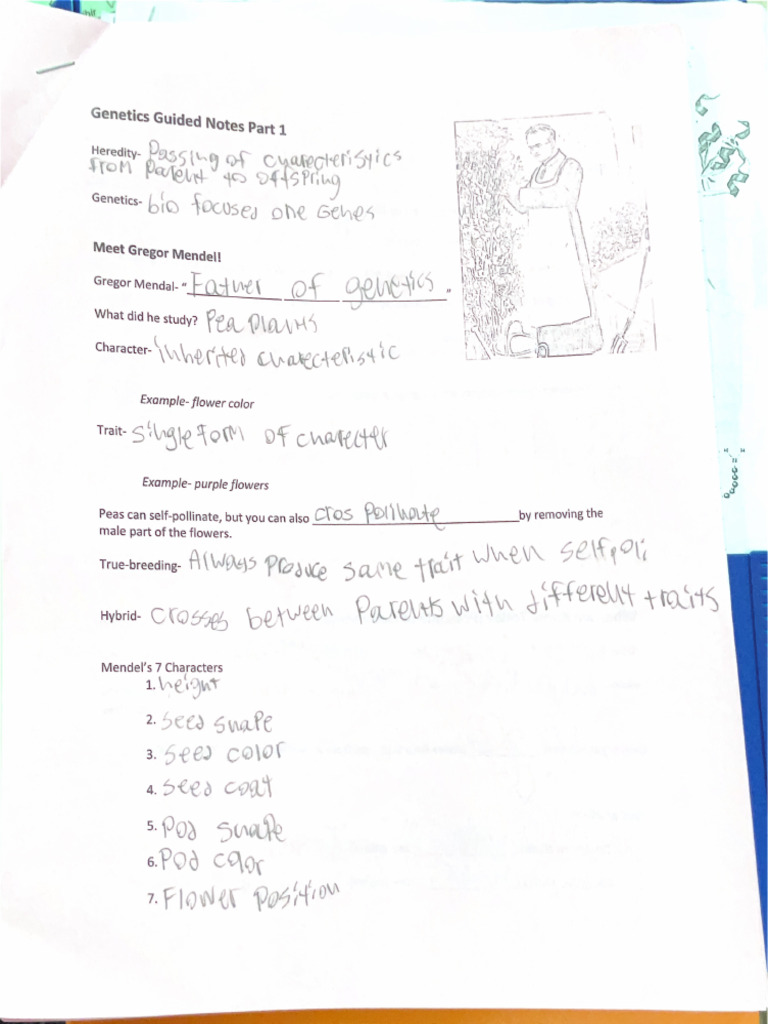 Genetics Guided Notes Part 1
Heredity- Passing of charecteristics
from parent to offspring
Genetics- bio focused one Genes
Meet Gregor Mendel!
Gregor Mendal- "Father of genetics"
What did he study? Pea plants
Character- inherited charecteristic
Example- flower color
Trait- single form of charecter
Example- purple flowers
Peas can self-pollinate, but you can also cros Pollinate by removing the
male part of the flowers.
True-breeding- Always produce same trait when self poli
Hybrid- crosses between Parents with different traits
Mendel's 7 Characters
1. height
2. seed shape
3. seed color
4. seed coat
5. Pod shape
6. Pod color
7. Flower Position